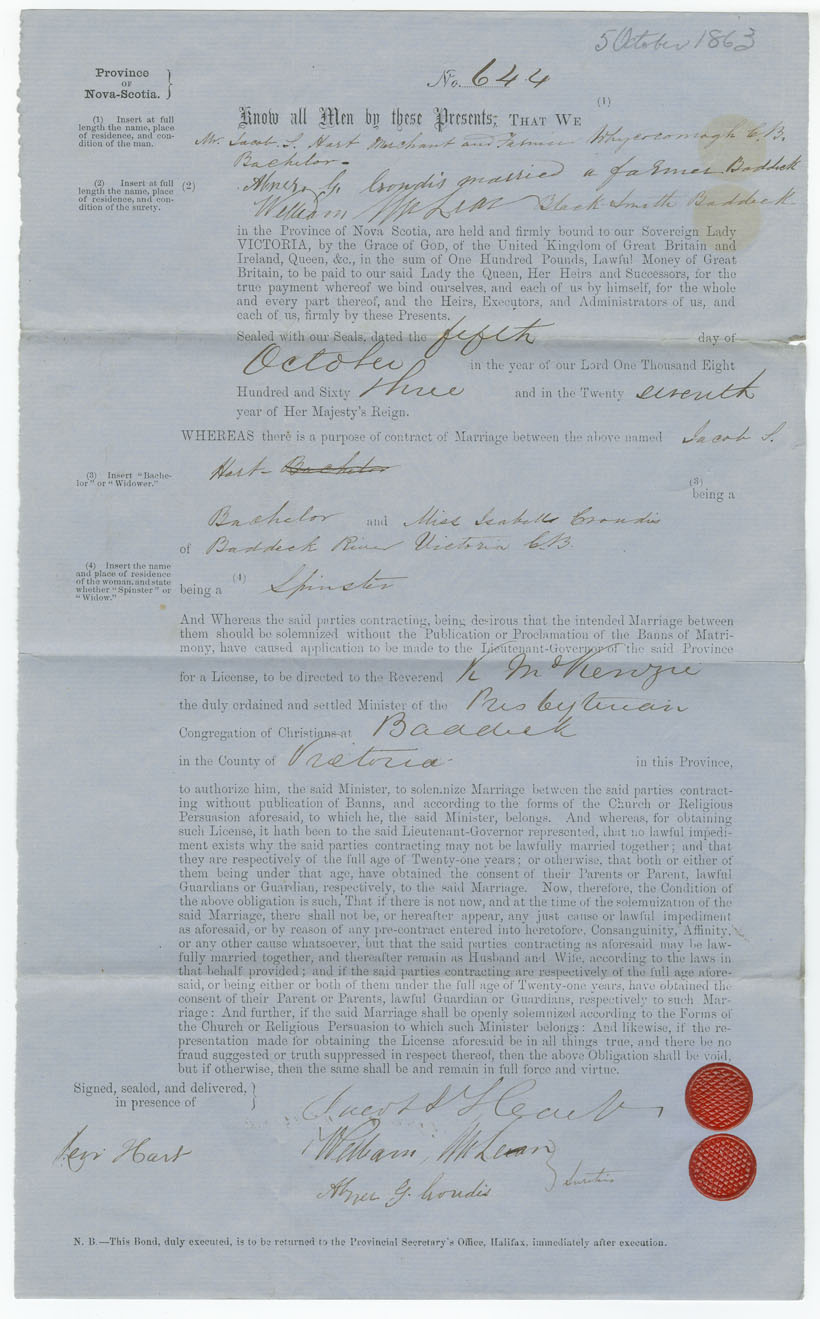 5 October 1863
Province
OF
Nova-Scotia.
No. 644
(1)
Know all Men by these Presents; THAT WE
(1) Insert at full
length the name, place
of residence, and con-
dition of the man.
Mr. Jacob S. Hart Merchant and Farmer Whycocomagh C. B.
Bachelor -
(2) Insert at full
length the name, place
of residence, and con-
dition of the surety.
(2) Abner G. Croudis married a farmer Baddeck
William McLean Black Smith Baddeck
in the Province of Nova Scotia, are held and firmly bound to our Sovereign Lady
VICTORIA, by the Grace of GOD, of the United Kingdom of Great Britain and
Ireland, Queen, &c., in the sum of One Hundred Pounds, Lawful Money of Great
Britain, to be paid to our said Lady the Queen, Her Heirs and Successors, for the
true payment whereof we bind ourselves, and each of us by himself, for the whole
and every part thereof, and the Heirs, Executors, and Administrators of us, and
each of us, firmly by these Presents.
Sealed with our Seals, dated the fifth day of
October in the year of our Lord One Thousand Eight
Hundred and Sixty three and in the Twenty seventh
year of Her Majesty's Reign.
WHEREAS there is a purpose of contract of Marriage between the above named Jacob S.
Hart - Bachelor
(3) Insert "Bache-
lor" or "Widower."
(3)
being a
Bachelor and Miss Isabella Croudis
of Baddeck River Victoria C.B.
(4) Insert the name
and place of residence
of the woman, and state
whether "Spinster" or
"Widow."
being a (4) Spinster
And Whereas the said parties contracting, being desirous that the intended Marriage between
them should be solemnized without the Publication or Proclamation of the Banns of Matri-
mony, have caused application to be made to the Lieutenant-Governor of the said Province
for a License, to be directed to the Reverend K McKenzie
the duly ordained and settled Minister of the Presbyterian
Congregation of Christians at Baddeck
in the County of Victoria in this Province,
to authorize him, the said Minister, to solemnize Marriage between the said parties contract-
ing without publication of Banns, and according to the forms of the Church or Religious
Persuasion aforesaid, to which he, the said Minister, belongs. And whereas, for obtaining
such License, it hath been to the said Lieutenant-Governor represented, that no lawful impedi-
ment exists why the said parties contracting may not be lawfully married together; and that
they are respectively of the full age of Twenty-one years; or otherwise, that both or either of
them being under that age, have obtained the consent of their Parents or Parent, lawful
Guardians or Guardian, respectively, to the said Marriage. Now, therefore, the Condition of
the above obligation is such, That if there is not now, and at the time of the solemnization of the
said Marriage, there shall not be, or hereafter appear, any just cause or lawful impediment
as aforesaid, or by reason of any pre-contract entered into heretofore, Consanguinity, Affinity,
or any other cause whatsoever, but that the said parties contracting as aforesaid may be law-
fully married together, and thereafter remain as Husband and Wife, according to the laws in
that behalf provided; and if the said parties contracting are respectively of the full age afore-
said, or being either or both of them under the full age of Twenty-one years, have obtained the
consent of their Parent or Parents, lawful Guardian or Guardians, respectively to such Mar-
riage: And further, if the said Marriage shall be openly solemnized according to the Forms of
the Church or Religious Persuasion to which such Minister belongs: And likewise, if the re-
presentation made for obtaining the License aforesaid be in all things true, and there be no
fraud suggested or truth suppressed in respect thereof, then the above Obligation shall be void,
but if otherwise, then the same shall be and remain in full force and virtue.
Signed, sealed, and delivered,
in presence of
Jacob S Hart
Levi Hart
William McLean
Abner G. Croudis
Sureties
N. B.—This Bond, duly executed, is to be returned to the Provincial Secretary's Office, Halifax, immediately after execution.